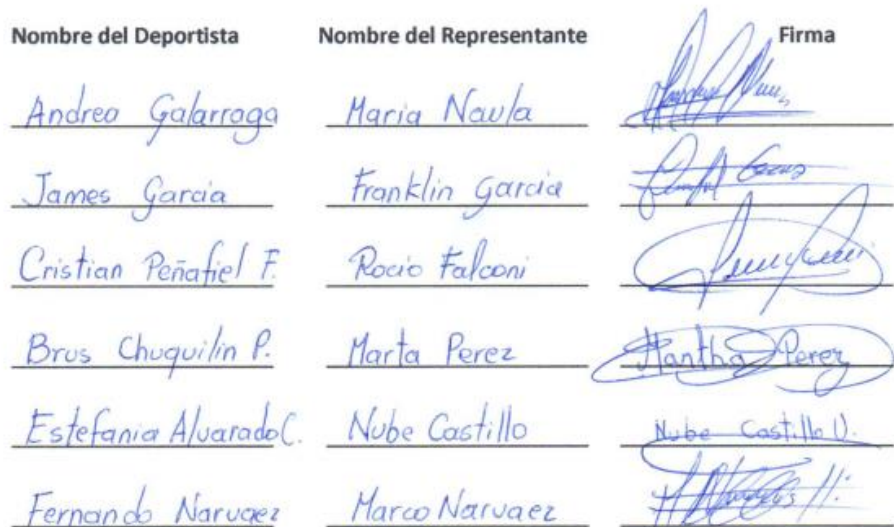 Nombre del Deportista Nombre del Representante Firma
Andrea Galarraga Maria Naula
James Garcia Franklin Garcia
Cristian Peñafiel F. Rocio Falconi
Brus Chuquilin P. Marta Perez Martha Perez
Estefania Alvarado C. Nube Castillo Nube Castillo U.
Fernando Narvaez Marco Narvaez